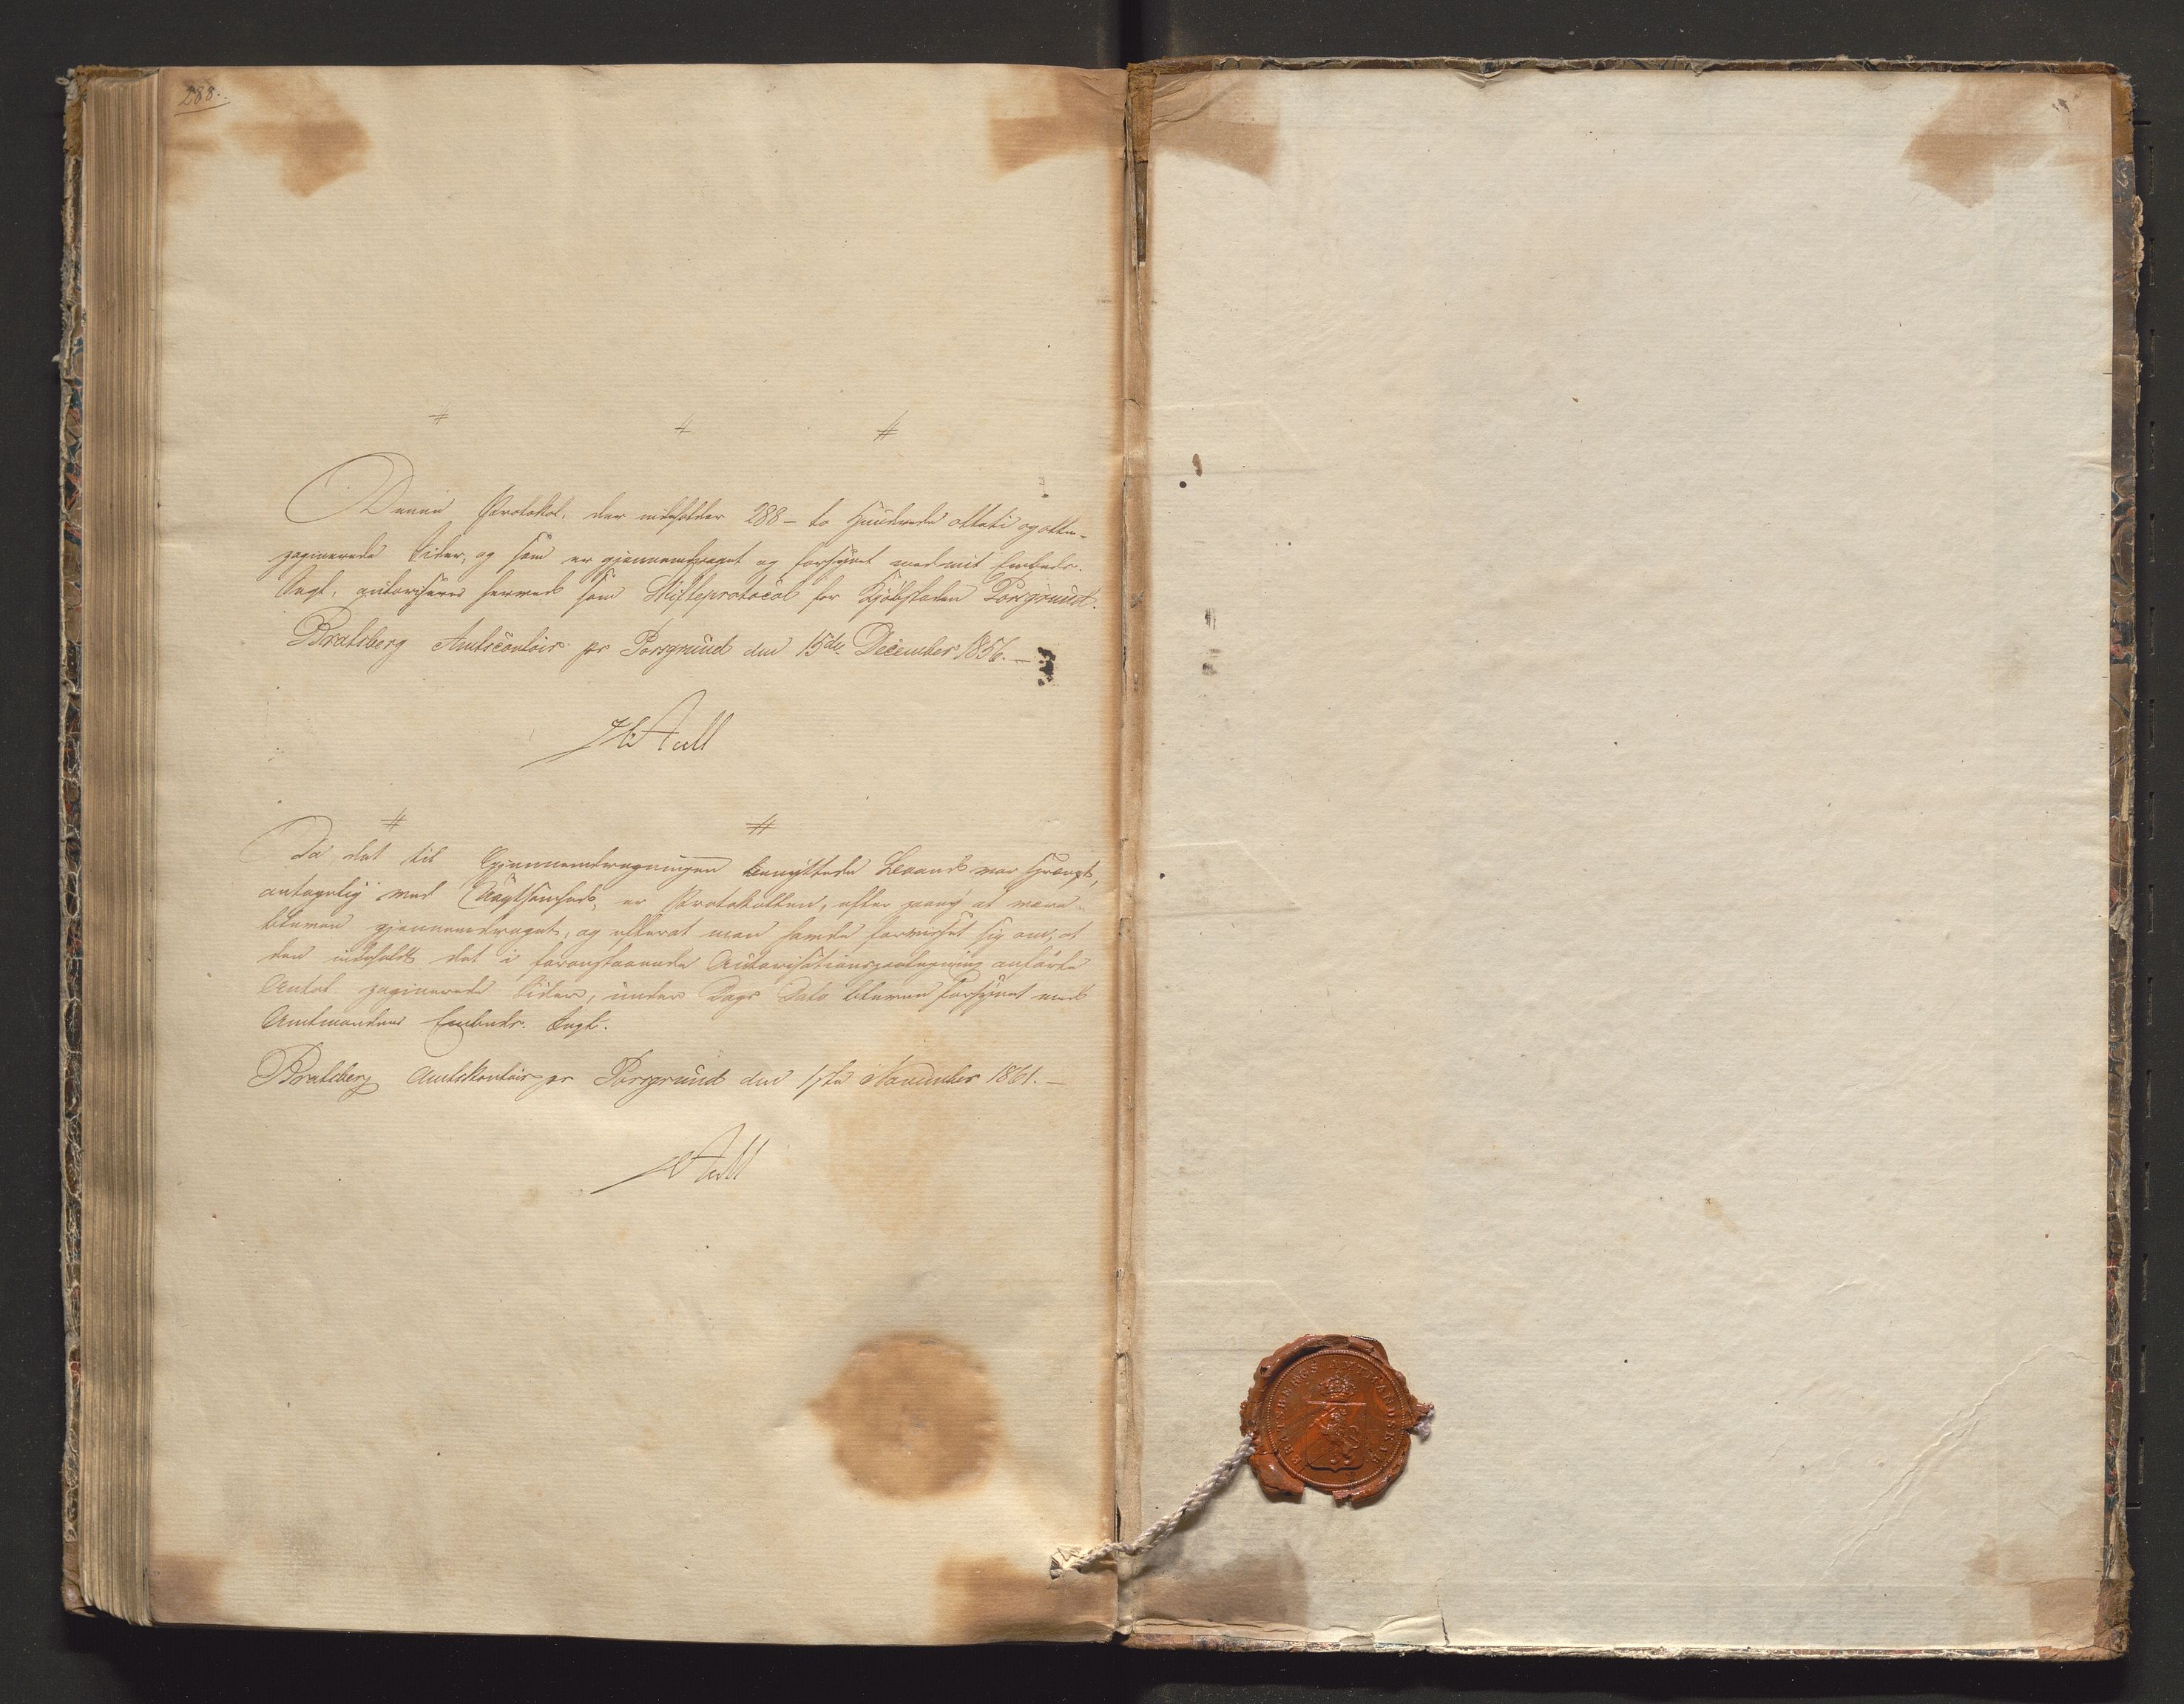 288.
Denne Protokol, der indeholder 288 - to Hundrede otteti og otte -
paginerede Sider, og som er gjennemdraget og forsynet med mit Embeds-
Segl, autoriseres herved som Skifteprotocol for Kjøbstaden Porsgrund.
Bratsberg Amtscontoir pr Porsgrund den 15de December 1856. -
HAall
Da det til Gjennemdragningen benyttede Baand var sprængt,
antagelig ved Uagtsomhed, er Protokollen, efter paany at være
bleven gjennemdraget, og efterat man havde forvisset sig om, at
den indeholdt det i foranstaaende Autorisationspaategning anførte
Antal paginerede Sider, under Dags Dato bleven forsynet med
Amtmandens Embeds-Segl.
Bratsberg Amtskontoir pr Porsgrund den 1ste November 1861. -
HAall
BRATSBERGS AMT